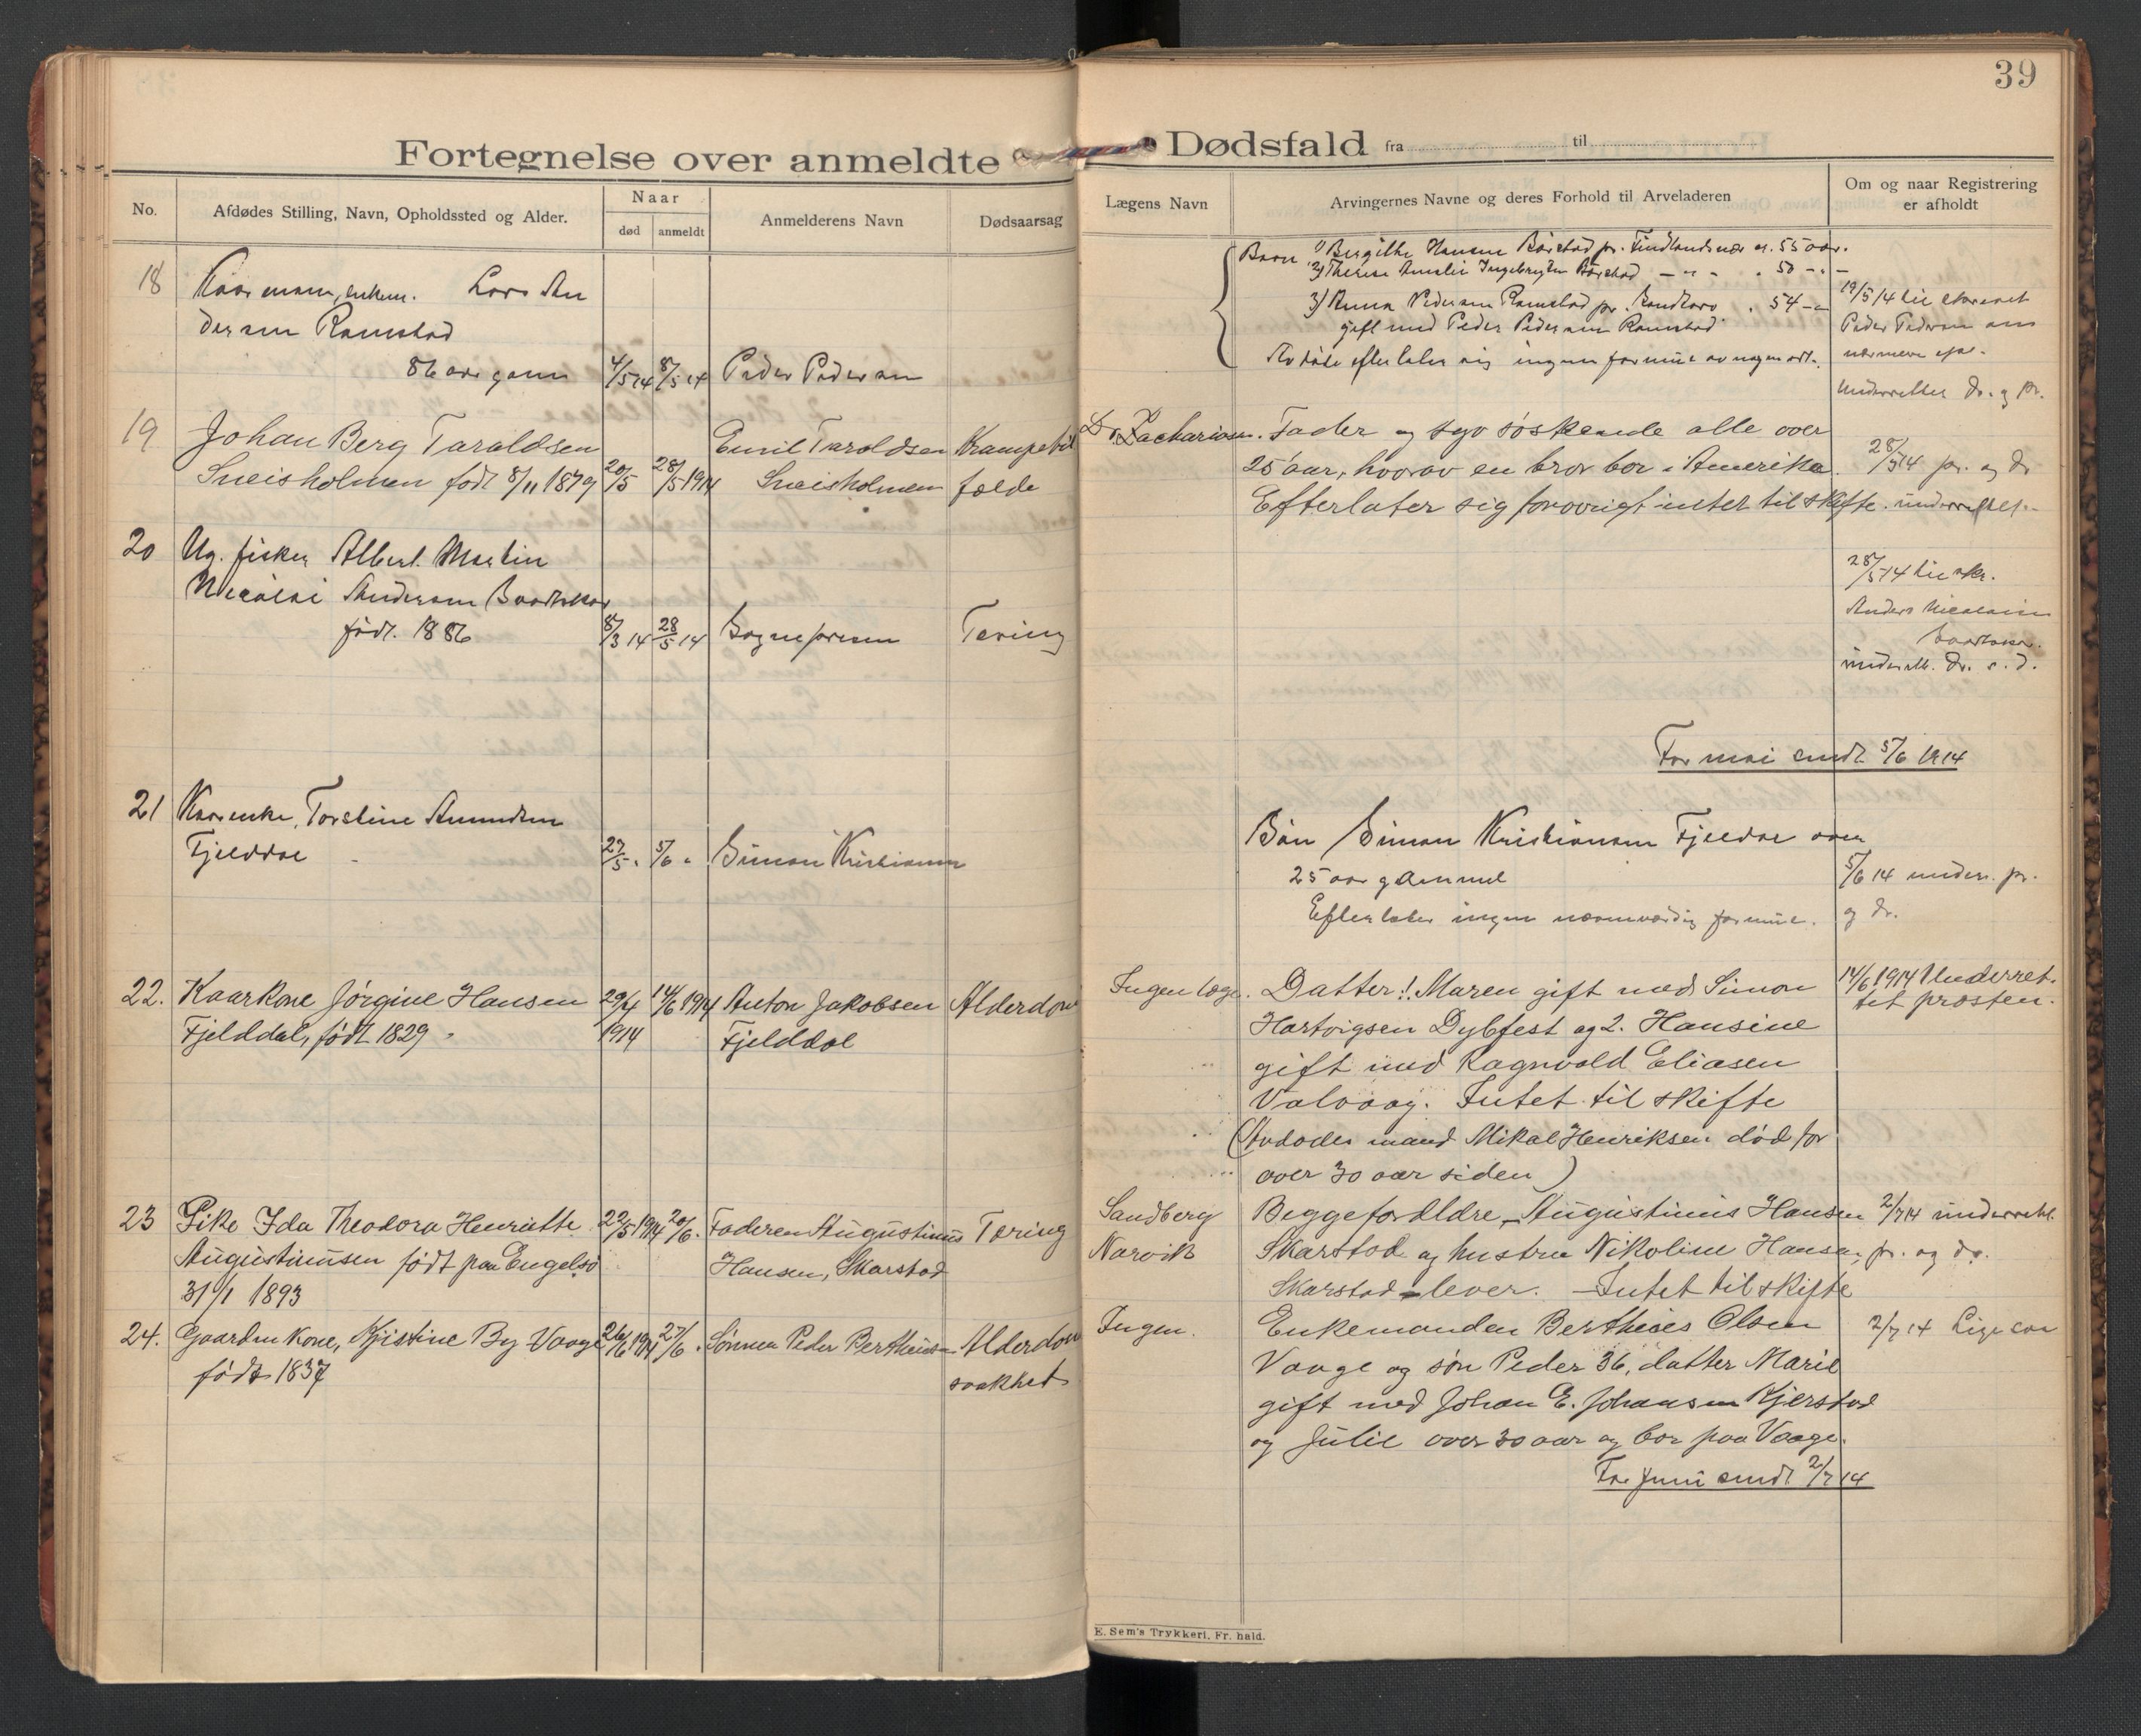 39
Fortegnelse over anmeldte Dødsfald fra til
No.
Afdødes Stilling, Navn, Opholdssted og Alder.
Naar
død
anmeldt
Anmelderens Navn
Dødsaarsag
Lægens Navn
Arvingernes Navne og deres Forhold til Arveladeren
Om og naar Registrering
er afholdt
18
Kaarmann, enkem. Lars An
dersen Ramstad
86 aar gam
4/5 14
8/5 14
Peder Pedersen
Barn 1) Hansen 55 aar.
2) Therese Amalie Ingebrigtsen 50
3) Anna Pedersen Ramstad pr. 54
gift med Peder Pedersen Ramstad
Avdøde efterlater sig ingen formue av nogen art.
19/5 14 til
Peder Pedersen om
nærmere
Underrettet dr. og pr.
19
Johan Berg Taraldsen
Sneisholmen født 8/11 1879
20/5
28/5 1914
Emil Taraldsen
Sneisholmen
Krampetil
fælde
Dr. Zachariasen.
Fader og syv søskende alle over
25 aar, hvorav en bror bor i Amerika.
Efterlater sig forøvrigt intet til skifte.
28/5 14 pr. og dr
underrettet.
20
Ug. fisker Albert Martin
Nicolai Andersen
født. 1886
8/3 14
28/5 14
Sognepresten
Tering
28/5 14 til
Anders
underrett. dr. s. d.
For mai sendt 5/6 1914
21
Kaarenke, Torstine Amundsen
Fjeldal
27/5 "
5/6 "
Simon Kristiansen
Søn Simon Kristiansen Fjeldal over
25 aar gammel
Efterlater ingen nævneværdig formue.
5/6 14 underr. pr.
og dr.
22.
Kaarkone Jørgine Hansen
Fjelddal, født 1829
29/4
1914
14/6 1914
Anton Jakobsen
Fjelddal
Alderdom
Ingen læge.
Datter: 1. Maren gift med Simon
Hartvigsen Dybfest og 2. Hansine
gift med Ragnvald Eliasen
Valvaag. Intet til skifte
(Avdødes mand Mikal Henriksen død for
over 30 aar siden)
14/6 1914 Underret-
tet prosten.
23
Pike Ida Theodora Henriette
Augustinusen født paa Engelsø
31/1 1893
22/5 1914
20/6.
Faderen Augustinus
Hansen, Skarstad
Tæring
Sandberg
Narvik
Begge forældre, Augustinus Hansen
Skarstad og hustru Nikoline Hansen,
Skarstad lever. Intet til skifte
2/7 14 underrettet
pr. og dr.
24.
Gaardm. Kone, Kristine By Vaage
født 1837
26/6 1914
27/6.
Sønnen Peder Bertheusen
Alderdom
svakhet
Ingen.
Enkemanden Bertheus Olsen
Vaage og søn Peder 36, datter Marie
gift med Johan E. Johansen Kjerstad
og Julie over 30 aar og bor paa Vaage.
2/7 14 Ligesaa
For Juni sendt 2/7 14
E. Sem's Trykkeri, Fr. hald.